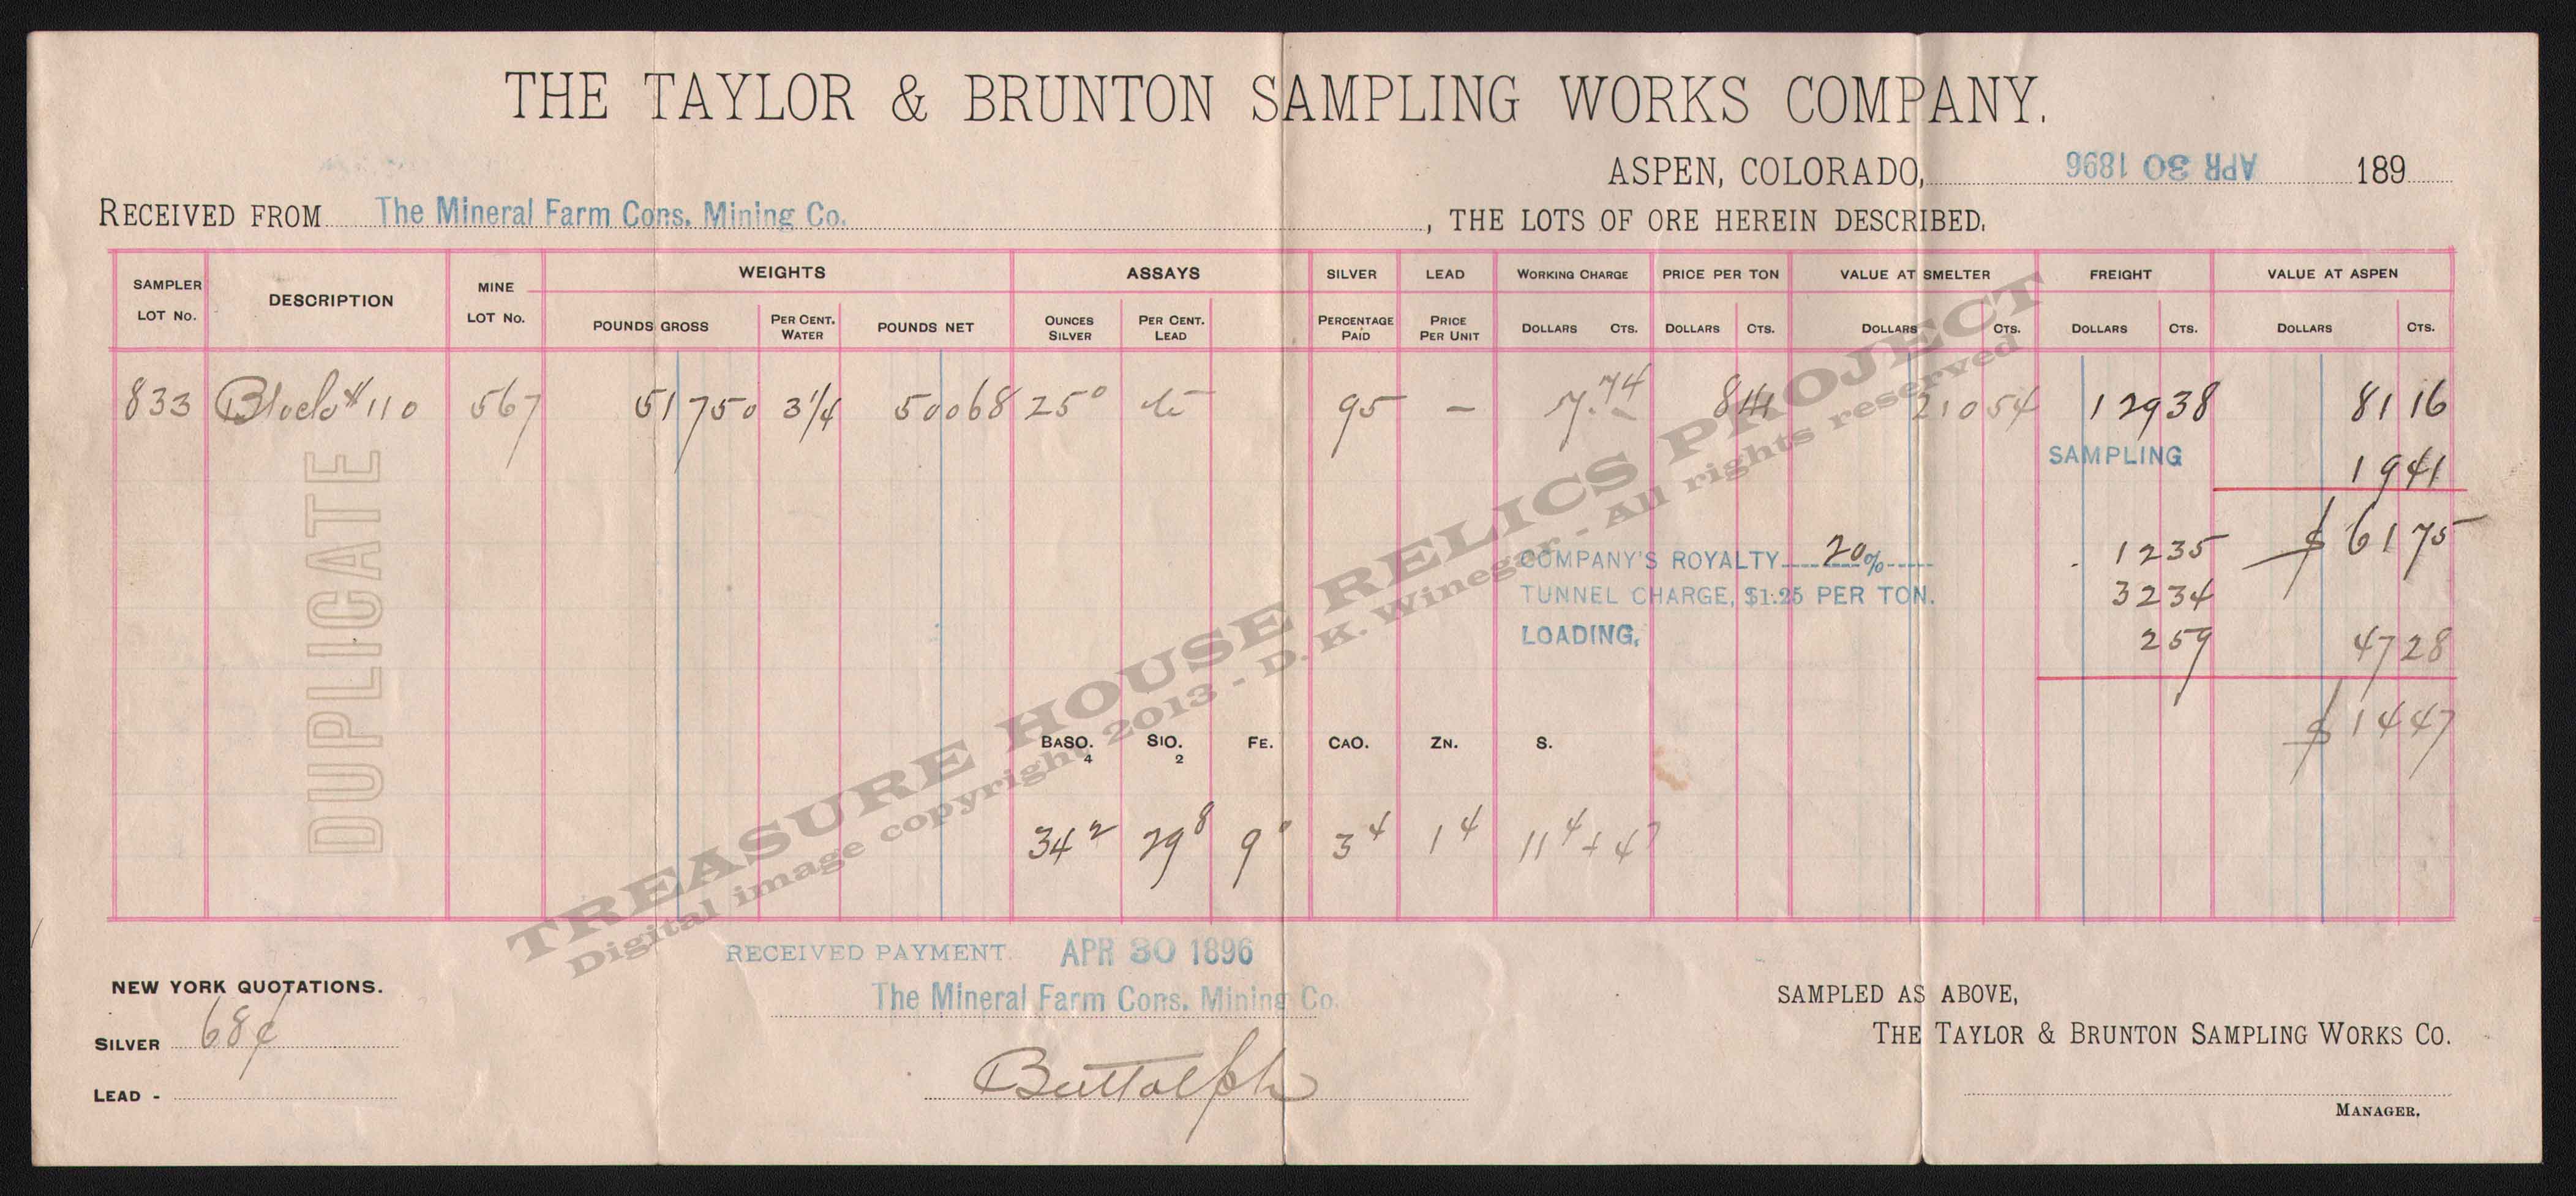 THE TAYLOR & BRUNTON SAMPLING WORKS COMPANY.
ASPEN, COLORADO, APR 30 1896 189
RECEIVED FROM The Mineral Farm Cons. Mining Co. , THE LOTS OF ORE HEREIN DESCRIBED.
SAMPLER LOT No. DESCRIPTION MINE LOT No. WEIGHTS ASSAYS SILVER LEAD WORKING CHARGE PRICE PER TON VALUE AT SMELTER FREIGHT VALUE AT ASPEN
POUNDS GROSS PER CENT. WATER POUNDS NET OUNCES SILVER PER CENT. LEAD PERCENTAGE PAID PRICE PER UNIT DOLLARS CTS. DOLLARS CTS. DOLLARS CTS. DOLLARS CTS. DOLLARS CTS.
833 Block #110 567 51750 3 1/4 50068 25 0 95 – 7.74 841 21054 12938 8116
SAMPLING 1941
$6175
COMPANY'S ROYALTY 20% 1235
TUNNEL CHARGE, $1.25 PER TON. 3234
LOADING. 259 4728
$1447
BASO4. SIO2. FE. CAO. ZN. S.
34 2 29 8 9 0 3 4 1 4 11 4 + 47
DUPLICATE
TREASURE HOUSE RELICS PROJECT
Digital image copyright 2013 - D. K. Winegar - All rights reserved
RECEIVED PAYMENT. APR 30 1896
The Mineral Farm Cons. Mining Co.
Buttolph
NEW YORK QUOTATIONS.
SILVER 68¢
LEAD -
SAMPLED AS ABOVE,
THE TAYLOR & BRUNTON SAMPLING WORKS CO.
MANAGER.